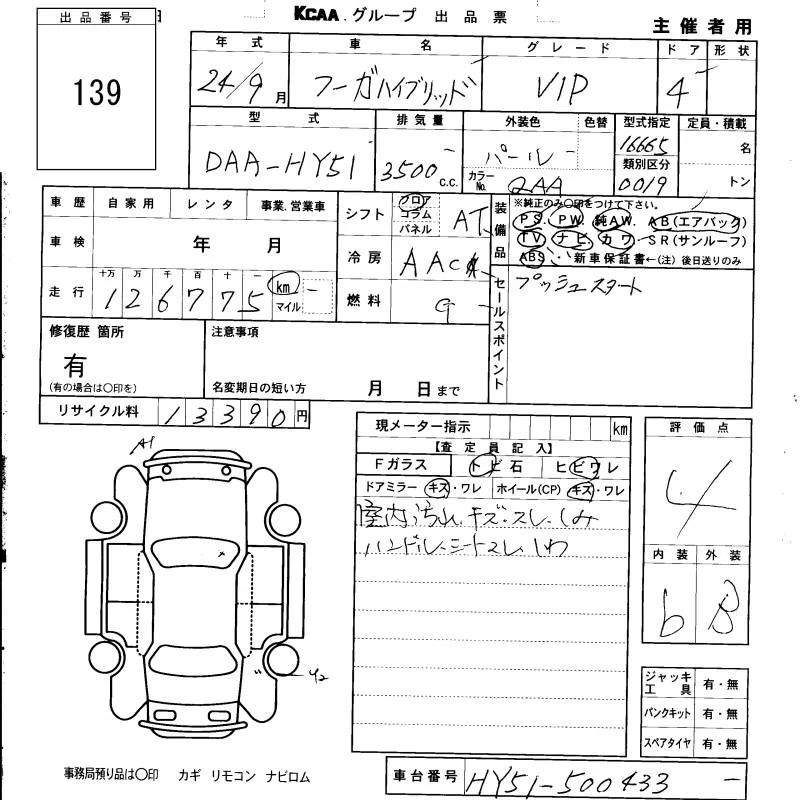 KCAA.グループ 出品票
主催者用
出品番号
139
年式 車名 グレード ドア 形状
24/9月 フーガハイブリッド VIP 4
型式 排気量 外装色 色替 型式指定 定員・積載
DAA-HY51 3500 c.c. パール 16665 名
カラーNo. QAA 類別区分 0019 トン
車歴 自家用 レンタ 事業.営業車
車検 年 月
走行 十万 万 千 百 十 一
126775 km マイル
シフト フロア コラム パネル AT
冷房 AAC
燃料 G
装備品
※純正のみ〇印をつけて下さい。
PS. PW. 純AW. AB(エアバック)
TV ナビ. カワ. SR(サンルーフ)
ABS 新車保証書←(注) 後日送りのみ
セールスポイント
プッシュスタート
修復歴 箇所
有
(有の場合は〇印を)
注意事項
名変期日の短い方 月 日まで
リサイクル料 13390円
現メーター指示 km
【査定員記入】
Fガラス トビ石 ヒビワレ
ドアミラー キズ・ワレ ホイール(CP) キズ・ワレ
室内汚れ.キズ.スレ.しみ
ハンドル.シートスレ.しわ
評価点
4
内装 外装
b B
A1
Y2
ジャッキ工具 有・無
パンクキット 有・無
スペアタイヤ 有・無
事務局預り品は〇印 カギ リモコン ナビロム
車台番号 HY51-500433